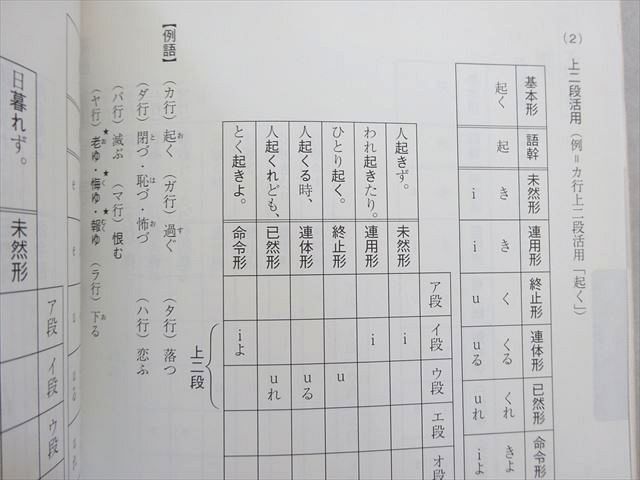 (2) 上二段活用(例=カ行上二段活用「起く」)
基本形 語幹 未然形 連用形 終止形 連体形 已然形 命令形
起く 起 き き く くる くれ きよ
i i u uる uれ iよ
ア段 イ段 ウ段 エ段 オ段
人起きず。 未然形 i
われ起きたり。 連用形 i
ひとり起く。 終止形 u
人起くる時、 連体形 uる
人起くれども、 已然形 uれ
とく起きよ。 命令形 iよ
上二段
【例語】
(カ行)起く (ガ行)過ぐ (タ行)落つ
(ダ行)閉づ・恥づ・怖づ (ハ行)恋ふ
(バ行)滅ぶ (マ行)恨む
(ヤ行)老ゆ・悔ゆ・報ゆ (ラ行)下る
ア段 イ段 ウ段
日暮れず。 未然形